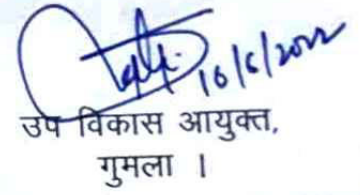 10/6/2022
उप विकास आयुक्त,
गुमला ।